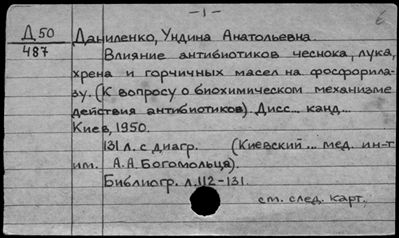 -1-
Д 50
487
Даниленко, Ундина Анатольевна.
Влияние антибиотиков чеснока, лука,
хрена и горчичных масел на фосфорила-
зу. (К вопросу о биохимическом механизме
действия антибиотиков). Дисс... канд...
Киев, 1950.
131 л. с диагр. (Киевский... мед. ин-т
им. А.А.Богомольца).
Библиогр. л.112-131.
см. след. карт.